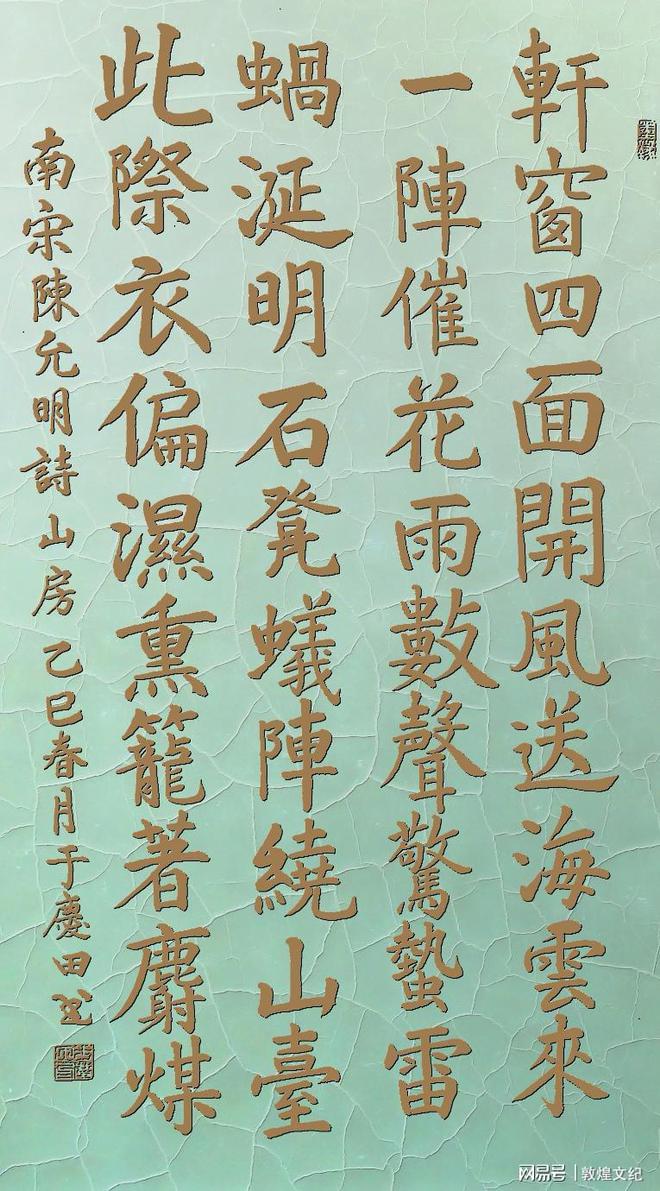 軒窗四面開風送海雲來
一陣催花雨數聲驚蟄雷
蝸涎明石凳蟻陣繞山臺
此際衣偏濕熏籠著麝煤
南宋陳允明詩山房乙巳春月于慶田书
网易号 | 敦煌文纪